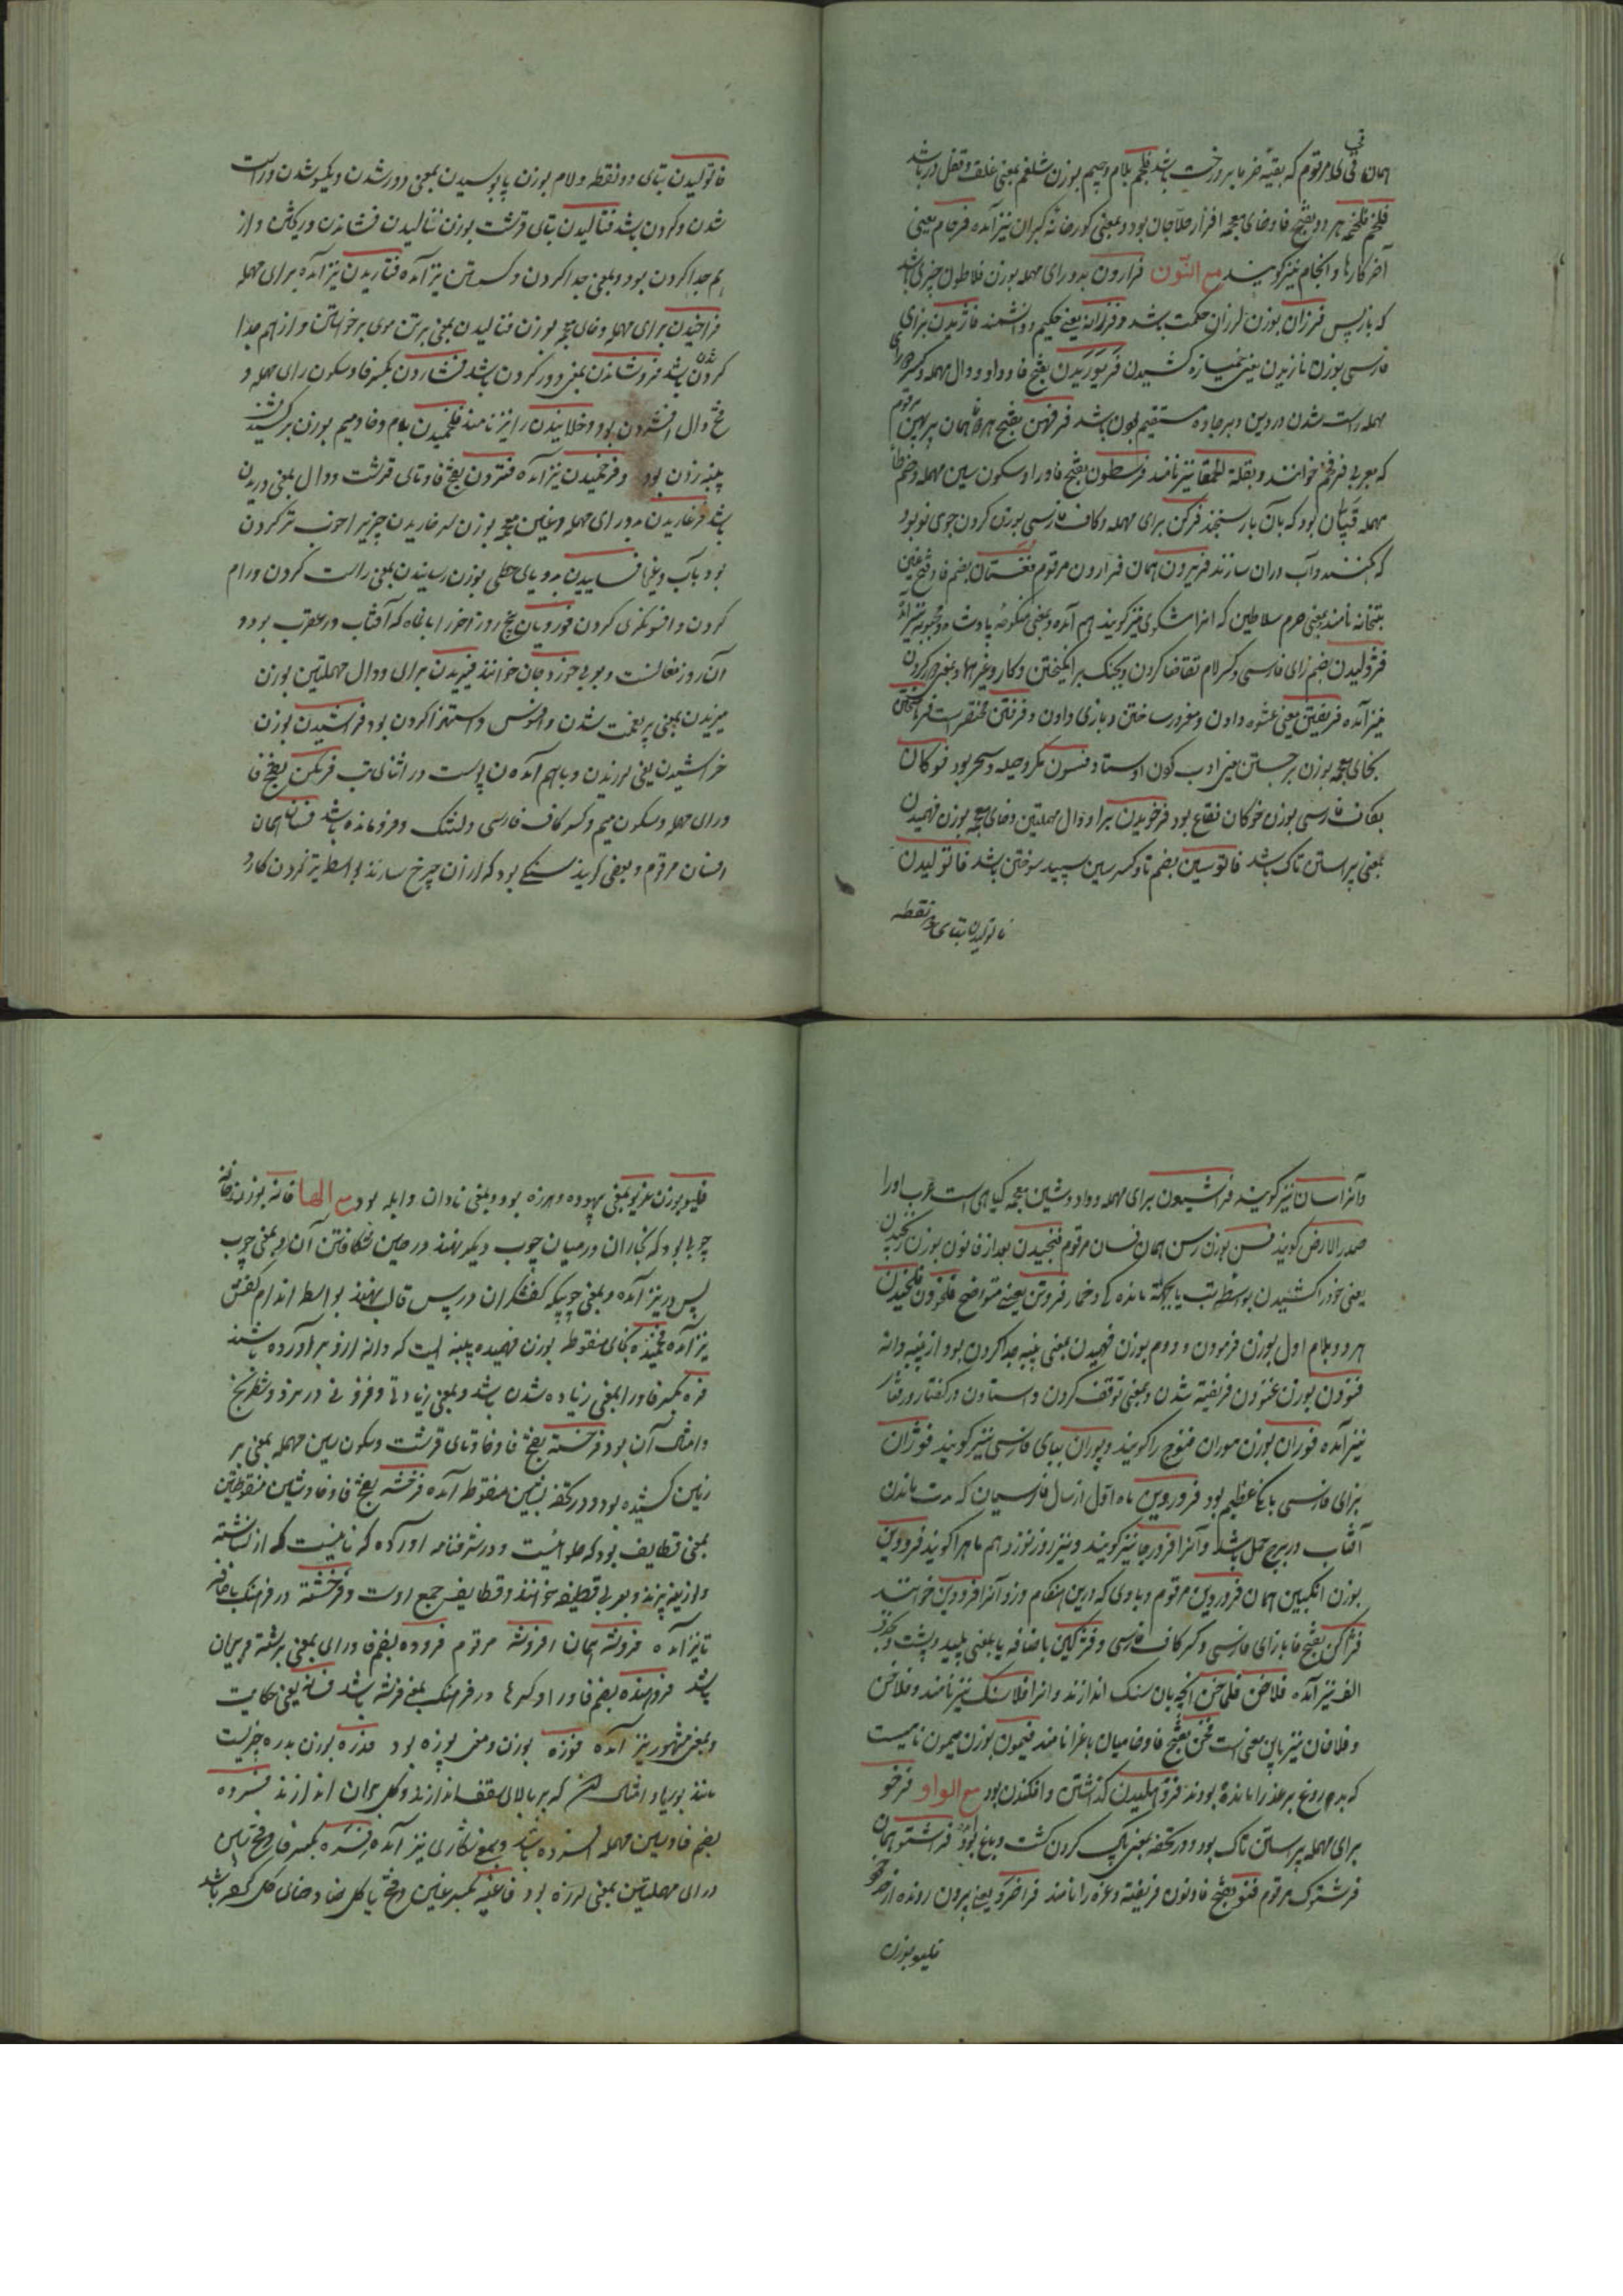 همان فی کلا مرقوم که بقیهٔ خرما بر درخت باشد فلجم بلام و جیم بوزن شلغم بمعنی غلق و قفل در باشد
فلخم فلخمه هر دو بفتح فا و خای معجمه افزار حلاجان بود و بمعنی کورخانهٔ کبران نیز آمده فرجام یعنی
آخر کارها و انجام نیز کویند مع النّون فرارون بدو رای مهمله بوزن فلاطون چیزی باشد
که باز پس فرزان بوزن لرزان حکمت باشد و فرزانه یعنی حکیم و دانشمند فاژیدن بزای
فارسی بوزن نازیدن یعنی خمیازه کشیدن فریوریدن بفتح فا و واو و دال مهمله و کسر رای
مهمله راست شدن در دین و بر جاده مستقیم بودن باشد فرفهن بفتح هر دو فا همان پرپهن مرقوم
که بعربی فرفخ خوانند و بقلة الحمقا نیز نامند فرسطون بفتح فا و را و سکون سین مهمله و ضم طا
مهمله قپان بود که بآن بار سنجند فرکن برای مهمله و کاف فارسی بوزن کردن جوی نو بود
که بکنند و آب دران سازند فریرون همان فرارون مرقوم فغستان بضم فا و فتح غین
بتخانه نامند و بمعنی حرم سلاطین که انرا مشکوی نیز کویند هم آمده و بمعنی منکوحهٔ پادشاه و محبوبه نیز آمده
فژولیدن بضم زای فارسی و کسر لام تقاضا کردن و بجنک بر انکیختن و کار و غیر اها و بمعنی دور کردن
نیز آمده فریفتن یعنی عشوه دادن و مغرور ساختن و بازی دادن و فرفتن مختصر است
بخای معجمه بوزن برجستن یعنی ادب کون اوستاد فسون مکر و حیله و سحر بود فوکان
بکاف فارسی بوزن خوکان فقاع بود فرخویدن برا و دال مهملتین و خای معجمه بوزن فهمیدن
بمعنی پیراستن تاک باشد فالتوسین بضم تا و کسر سین سپید سوختن باشد فاتولیدن
فاتولیدن بتای دو نقطه
فاتولیدن بتای دو نقطه و لام بوزن پابوسیدن بمعنی دور شدن و یکسو شدن و راست
شدن و کردن باشد فتالیدن بتای قرشت بوزن نالیدن فشاندن و ریختن و از
هم جدا کردن بود و بمعنی جدا کردن و کسستن نیز آمده فتاریدن نیز آمده برای مهمله
فراخیدن برای مهمله و خای معجمه بوزن فتالیدن بمعنی برتن موی برخواستن و از هم جدا
کردن شدن باشد فروشاندن بمعنی دور کردن باشد فشاردن بکسر فا و سکون رای مهمله و
فتح دال افشردن بود و خلانیدن را نیز نامند فلخمیدن بلام و خا و میم بوزن برکشیدن
پنبه زدن بود و فرخمیدن نیز آمده فتردن بفتح فا و تای قرشت و دال بمعنی دریدن
باشد فرغاریدن بدو رای مهمله و غین معجمه بوزن سرخاریدن چیزیرا خوب تر کردن
بود بآب و غیرها فساییدن بدو یای حطی بوزن رسانیدن بمعنی راست کردن و رام
کردن و افسونکری کردن فوردیان پنج روز آخر ابانماه که آفتاب در عقرب بود و
آن روز نعالست و بعربی خوزدجان خوانند فیریدن برای و دال مهملتین بوزن
میریدن بمعنی پر نعمت شدن و افسوس و استهزا کردن بود فراشیدن بوزن
خراشیدن یعنی لرزیدن و باهم آمدن پوست در اثنای تب فرمکن بفتح فا
و رای مهمله و سکون میم و کسر کاف فارسی دلتنک و فرومانده باشد فسان همان
افسان مرقوم و بعضی کویند سنکی بود که ازان چرخ سازند بواسطه تیز کردن کارد
و آنرا سان نیز کویند فراشیعون برای مهمله و واو و شین معجمه کیاهی است عرب او را
صدر الارض کویند فسن بوزن رسن همان فسان مرقوم فنجیدن بعد از فا نون بوزن رنجیدن
یعنی خود را کشیدن بواسطه تب یا بجهة مانده کی و خمار فروتن یعنی متواضع فلخودن فلخیدن
هر دو بلام اول بوزن فرمودن و دوم بوزن فهمیدن بمعنی پنبه جدا کردن بود از پنبه دانه
فنودن بوزن غنودن فریفته شدن و بمعنی توقف کردن و استادن در کفتار و رفتار
نیز آمده فوران بوزن موران قنوج را کویند و پوران ببای فارسی نیز کویند فوژان
بزای فارسی بانک عظیم بود فروردین ماه اول از سال فارسیان که مدت ماندن
آفتاب در برج حمل باشد و آنرا فرورجا نیز کویند و نیز روز نوزدهم ماهرا کویند فروردین
بوزن انکبین همان فروردین مرقوم و بادی که درین هنکام وزد آنرا فروردین خوانند
فژاکن بفتح فا با زای فارسی و کسر کاف فارسی و فژکین باضافه یا بمعنی پلید و پشت و بحذف
الف نیز آمده فلاخن فلماخن انچه بآن سنک اندازند و انرا فلاسنک نیز نامند و فلاخن
و فلاخان نیز باین معنی است فخن بفتح فا و خا میان باغ را نامند فیمون بوزن میمون نامیست
که بدروغ بر عذرا مانده بودند فروهلیدن کذاشتن و افکندن بود مع الواو فرخو
برای مهمله پیراستن تاک بود و در تحفه بمعنی پاک کردن کشت و باغ بود فرشتو همان
فرشتوک مرقوم فنو بفتح فا و نون فریفته و غره را نامند فراخرو یعنی بیرون رونده از حد خود
فلیو بوزن
فلیو بوزن غریو بمعنی بیهوده و هرزه بود و بمعنی نادان و ابله بود مع الها فانه بوزن خانه
چوبی بود که نجاران در میان چوب دیکر نهند در حین شکافتن آن و بمعنی چوب
پس در نیز آمده و بمعنی چوبکی که کفشکران در پس قالب نهند بواسطه اندام کفش
نیز آمده فخمیده بخای منقوطه بوزن فهمیده پنبه ایست که دانه ازو بر آورده باشند
فره بکسر فا و را بمعنی زیاده شدن باشد و بمعنی زیادتی و فزونی در نرد و شطرنج
و امثال آن بود فرخسته بفتح فا و خا و تای قرشت و سکون سین مهمله بمعنی بر
زمین کشیده بود و در تحفه بشین منقوطه آمده فرخشه بفتح فا و خا و شین منقوطتین
بمعنی قطایف بود که حلوائیست و در شرفنامه اورده که نانیست که از نشاسته
و لوزینه پزند و بعربی قطیفه خوانند و قطایف جمع اوست و فرخشته در فرهنک باضافه
تا نیز آمده فروشه همان افروشه مرقوم فروده بضم فا و رای بمعنی برشته و بریان
باشد فروهنده بضم فا و را و کسر ها در فرهنک بمعنی فرشته باشد فسانه یعنی حکایت
و بمعنی مشهور نیز آمده فوزه بوزن و معنی پوزه بود فدره بوزن بدره چیزیست
مانند بوریا و امثال آن که بر بالای سقف اندازند و کل بران اندازند فسرده
بضم فا و سین مهمله افسرده باشد و بمعنی نکاری نیز آمده فشره بکسر فا و فتح شین
و رای مهملتین بمعنی لرزه بود فاغیه بکسر غین و فتح یا کل حنا و حنای کل کرده باشد